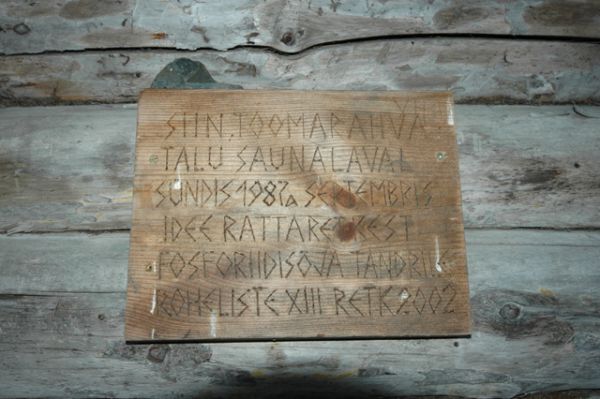 SIIN, TOOMARAHVA
TALU SAUNALAVAL
SÜNDIS 1987a SEPTEMBRIS
IDEE RATTARETKEST
FOSFORIIDISÕJA TANDRILE
ROHELISTE XIII RETK 2002